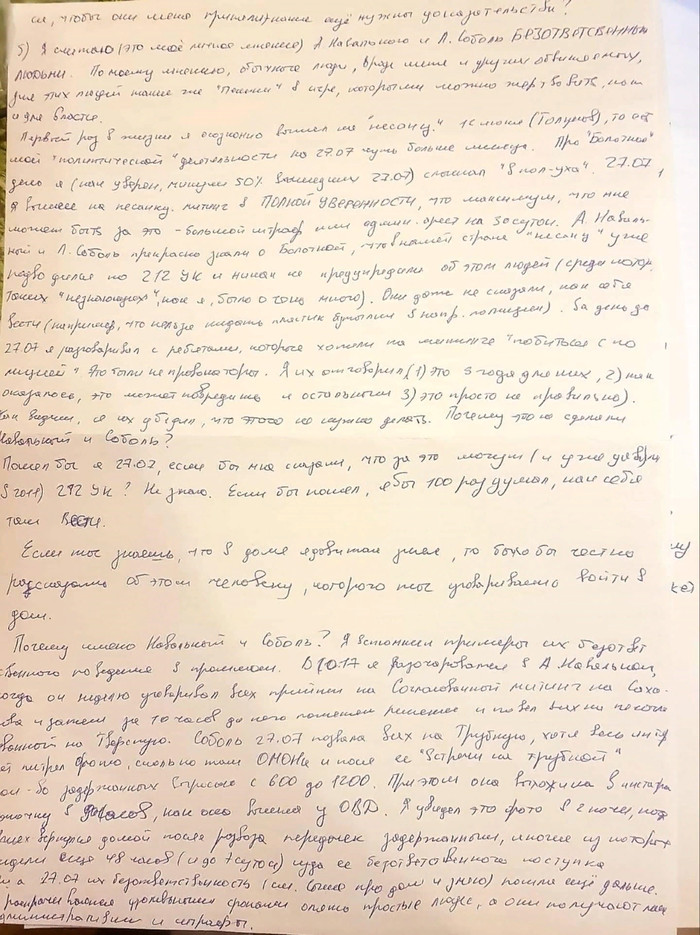 ся, чтобы они меня признали какие ещё нужны доказательства?
5) Я считаю (это моё личное мнение) А. Навального и Л. Соболь БЕЗОТВЕТСВЕННЫМИ
людьми. По моему мнению, обычные люди, вроде меня и других обвиняемых,
для этих людей такие же "пешки" в игре, которыми можно жертвовать, как
и для власти.
Первый раз в жизни я осознанно вышел на "несанкц." 12 июня (Голунов), то есть
моей "политической" деятельности на 27.07 чуть больше месяца. Про "Болотное"
дело я (как уверен, минимум 50% вышедших 27.07) слышал "в пол-уха". 27.07,
я вышел на несанкц. митинг в ПОЛНОЙ УВЕРЕННОСТИ, что максимум, что мне
может быть за это - большой штраф или админ. арест на 30 суток. А. Наваль-
ный и Л. Соболь прекрасно знали о Болотной, что в нашей стране "несанкц" уже
разводился по 212 УК и никак не предупредили об этом людей (среди котор.
таких "незнающих", как я, было очень много). Они даже не сказали, как себя
вести (например, что нельзя кидать пластик. бутылки в напр. полиции). За день до
27.07 я разговаривал с ребятами, которые хотели на митинге "побиться с по
лицией" Это были не провокаторы. Я их отговорил (1) это 5 года для них, 2) как
оказалось, это может навредить и остальным 3) это просто не правильно).
Как видим, я их убедил, что этого не нужно делать. Почему этого не сделали
Навальный и Соболь?
Пошел бы я 27.07, если бы мне сказали, что за это могут (и уже давали
в 2012) 212 УК? Не знаю. Если бы пошел, я бы 100 раз думал, как себя
там вести.
Если ты знаешь, что в доме ядовитая змея, то было бы честно
рассказать об этом человеку, которого ты уговариваешь войти в
дом.
Почему имено Навальный и Соболь? Я вспомнил примеры их безответ
ственного поведения в прошлом. В 2017 я разочаровался в А. Навальном,
когда он неделю уговаривал всех прийти на Согласованный митинг на Саха-
рова и затем за 10 часов до него поменял решение и повел всех на несогла
сованный на Тверскую. Соболь 27.07 позвала всех на Трубную, хотя весь интер
нет пестрел фото, сколько там ОМОНа и после ее "Встречи на трубной"
кол-во задержанных выросло с 600 до 1200. При этом она выложила в инстаграм
фоточку в часов, как она вышла у ОВД. Я увидел это фото в 2 ночи, когда
вернулся домой после развоза передачек задержанным, многие из которых
сидели ещё 48 часов (и до суток) из-за ее безответственного поступка
а 27.07 их безответственность (см. выше про дом и змею) пошла ещё дальше.
уголовными сроками опять простые люди, а они получают лишь
административки и штрафы.